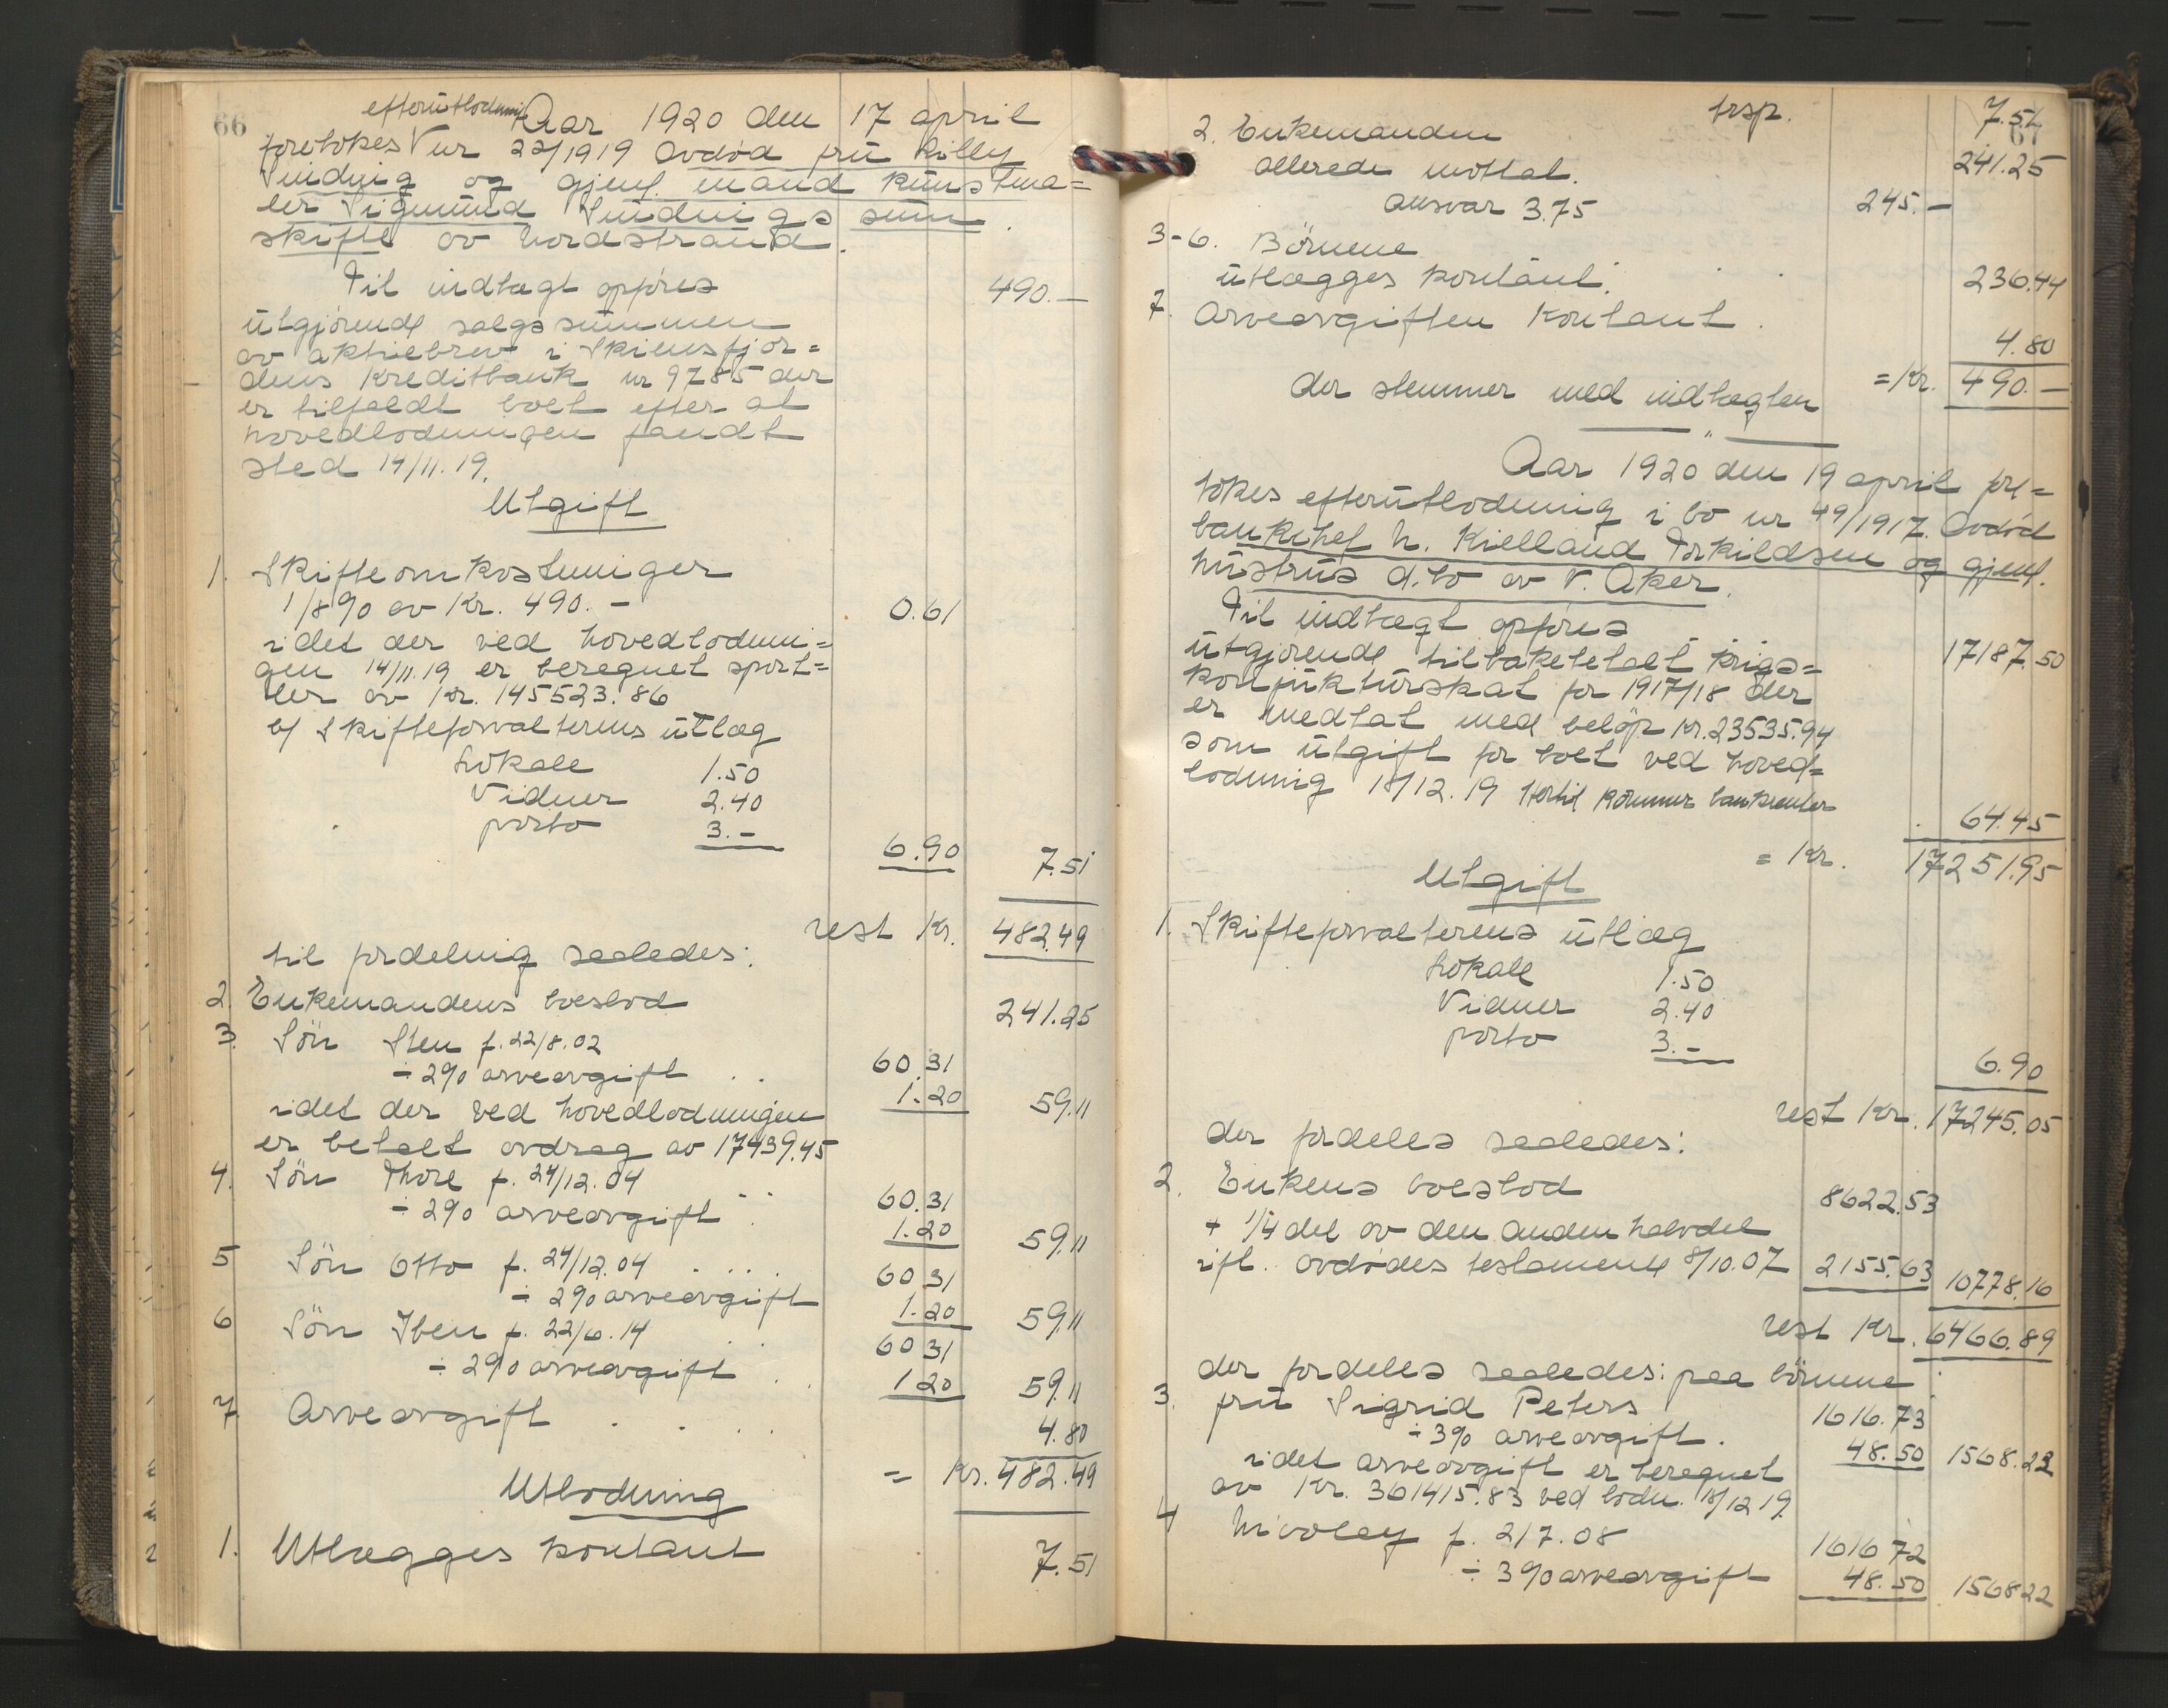 66
efterutlodning Aar 1920 den 17 april
foretokes V nr 22/1919 Avdød fru Lilly
Sinding og gjenl. mand kunstma=
ler Sigmund Sindings sam
skifte av Nordstrand.
Til indtægt opføres 490.–
utgjørende salgssummen
av aktiebrev i Skiensfjor=
dens Kreditbank nr 9785 der
er tilfaldt boet efter at
hovedlodningen fandt
sted 14/11.19.
Utgift
1. Skifteomkostninger
1/8 % av Kr. 490.– 0.61
idet der ved hovedlodnin=
gen 14/11.19 er beregnet sport=
ler av Kr. 145523.86
b/ Skifteforvalterens utlæg
Lokale 1.50
Vidner 2.40
porto 3.–
6.90 7.51
rest Kr. 482.49
til fordeling saaledes:
2. Enkemandens boeslod 241.25
3. Søn Sten f. 22/8.02 60.31
÷ 2% arveavgift . . 1.20 59.11
idet der ved hovedlodningen
er betalt avdrag av 17439.45
4. Søn Thore f. 24/12.04 60.31
÷ 2% arveavgift . 1.20 59.11
5 Søn Otto f. 24/12.04 . . . . 60.31
÷ 2% arveavgift 1.20 59.11
6 Søn Iben f. 22/6.14 . 60.31
÷ 2% arveavgift . 1.20 59.11
7. Arveavgift . . . 4.80
= Kr. 482.49
Utlodning
1. Utlægges kontant 7.51
67
trsp. 7.51
2. Enkemanden 241.25
allerede mottat.
ansvar 3.75 245.–
3-6. Børnene
utlægges kontant. . . 236.44
7. Arveavgiften kontant . 4.80
der stemmer med indtægten = Kr. 490.–
"
Aar 1920 den 19 april fore=
tokes efterutlodning i bo nr 49/1917. Avdød
bankchef N. Kielland Torkildsen og gjenl.
hustrus d.bo av V. Aker.
Til indtægt opføres 17187.50
utgjørende tilbakebetalt krigs=
konjunkturskat for 1917/18 der
er medtat med beløp Kr. 23535.94
som utgift for boet ved hoved=
lodning 18/12.19 Hertil kommer bankrenter . 64.45
= Kr. 17251.95
Utgift
1. Skifteforvalterens utlæg
Lokale 1.50
Vidner 2.40
porto 3.–
6.90
rest Kr. 17245.05
der fordeles saaledes:
2. Enkens boeslod 8622.53
+ 1/4 del av den anden halvdel
ifl. avdødes testamente 8/10.07 2155.63 10778.16
rest Kr. 6466.89
der fordeles saaledes: paa børnene
3. fru Sigrid Peters 1616.73
÷ 3% arveavgift . 48.50 1568.23
idet arveavgift er beregnet
av Kr. 361415.83 ved lodn. 18/12 19.
4 Nicolay f. 2/7.08 1616 72
÷ 3% arveavgift 48.50 1568 22